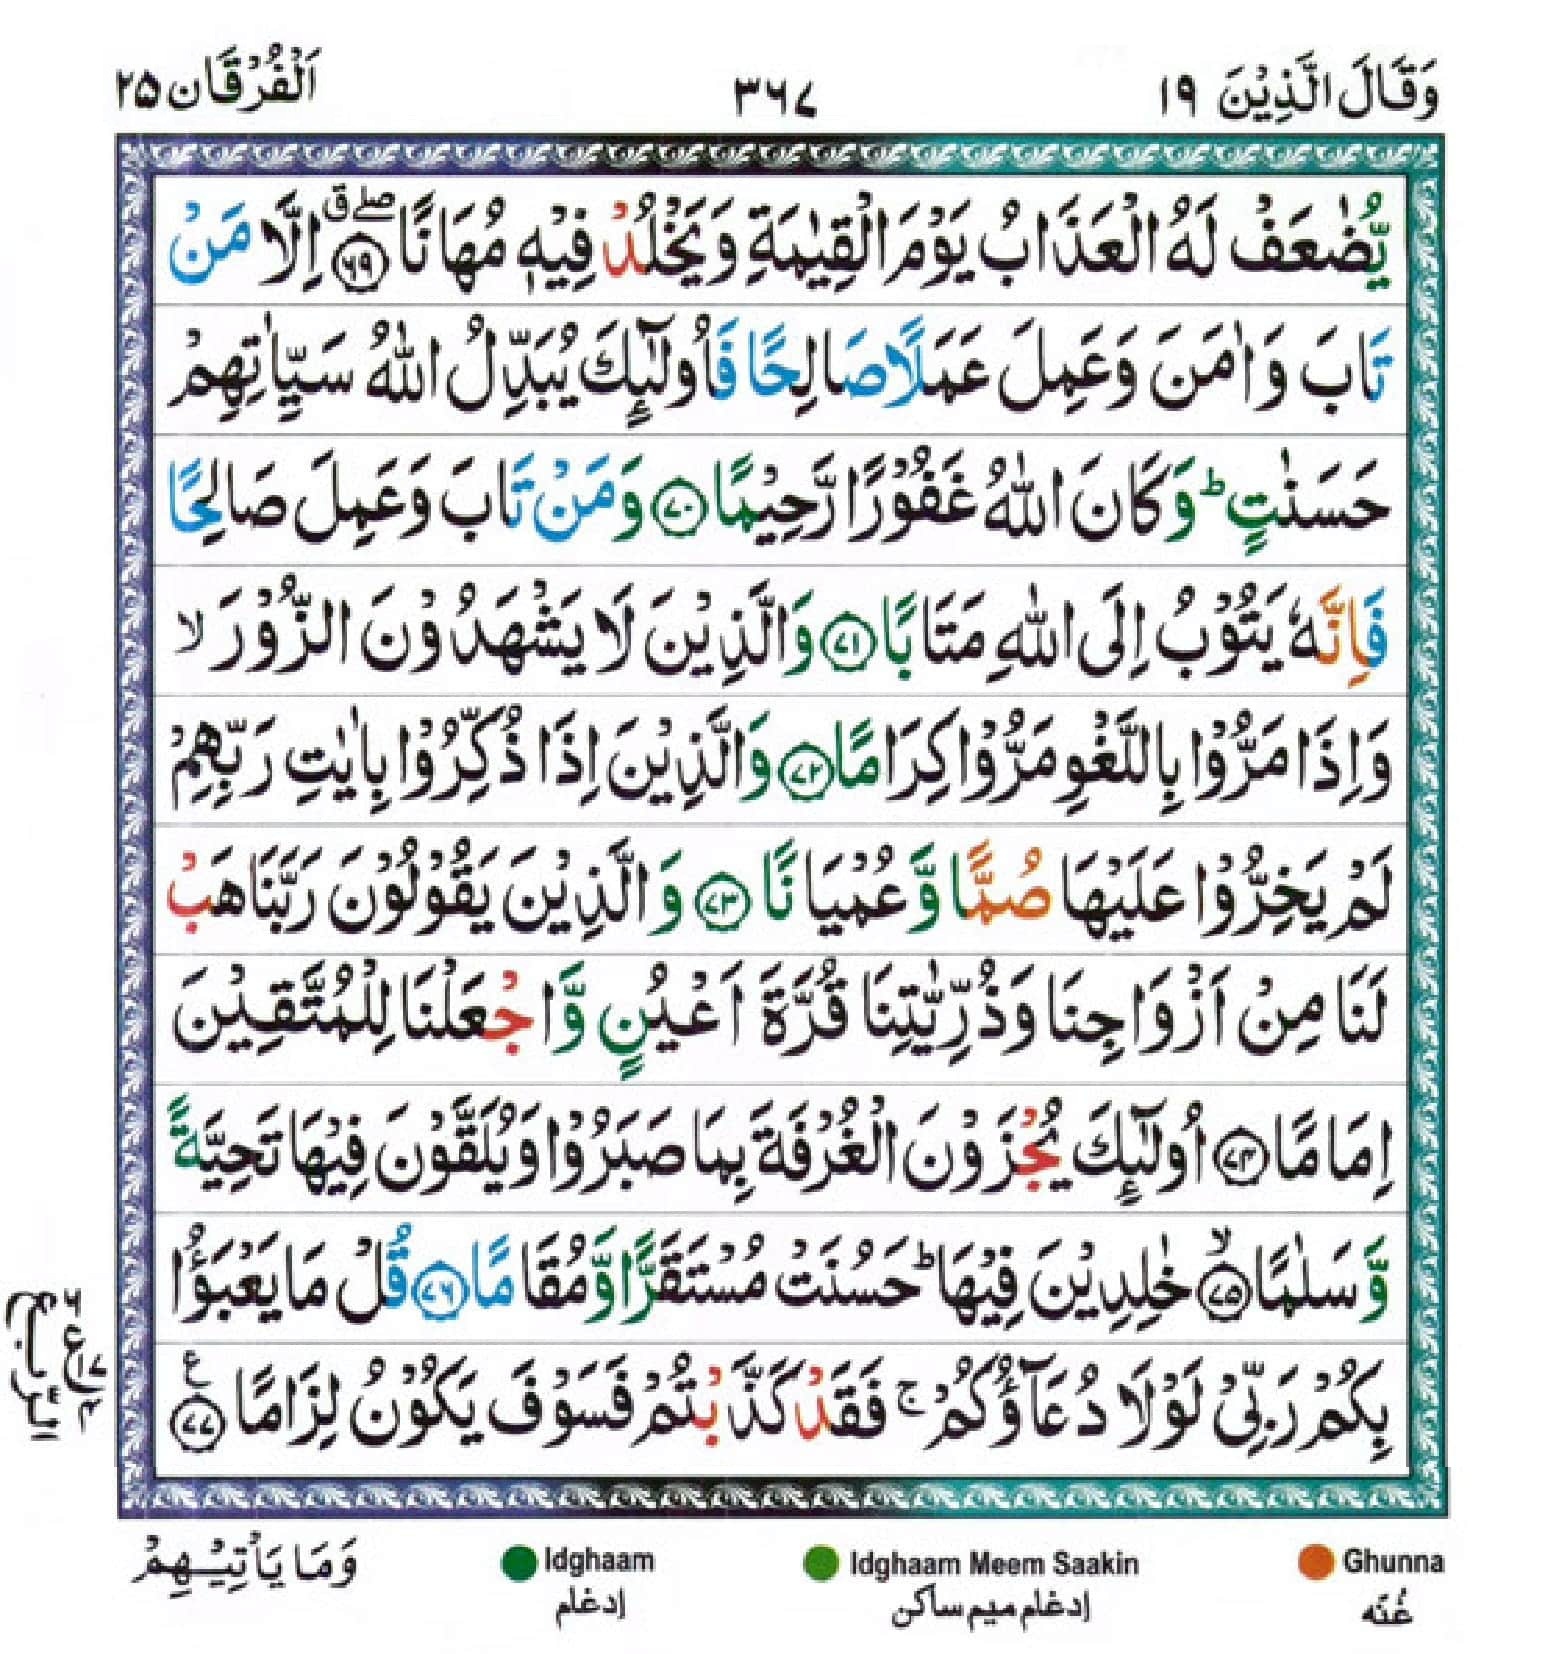 وَقَالَ الَّذِيْنَ ١٩
٣٦٧
اَلْفُرْقَان ٢٥
يُّضٰعَفْ لَهُ الْعَذَابُ يَوْمَ الْقِيٰمَةِ وَيَخْلُدْ فِيْهٖ مُهَانًا ۖق ﴿٦٩﴾ اِلَّا مَنْ
تَابَ وَاٰمَنَ وَعَمِلَ عَمَلًا صَالِحًا فَاُولٰٓئِكَ يُبَدِّلُ اللّٰهُ سَيِّاٰتِهِمْ
حَسَنٰتٍ ؕ وَكَانَ اللّٰهُ غَفُوْرًا رَّحِيْمًا ﴿٧٠﴾ وَمَنْ تَابَ وَعَمِلَ صَالِحًا
فَاِنَّهٗ يَتُوْبُ اِلَى اللّٰهِ مَتَابًا ﴿٧١﴾ وَالَّذِيْنَ لَا يَشْهَدُوْنَ الزُّوْرَ ۙ
وَاِذَا مَرُّوْا بِاللَّغْوِ مَرُّوْا كِرَامًا ﴿٧٢﴾ وَالَّذِيْنَ اِذَا ذُكِّرُوْا بِاٰيٰتِ رَبِّهِمْ
لَمْ يَخِرُّوْا عَلَيْهَا صُمًّا وَّعُمْيَانًا ﴿٧٣﴾ وَالَّذِيْنَ يَقُوْلُوْنَ رَبَّنَا هَبْ
لَنَا مِنْ اَزْوَاجِنَا وَذُرِّيّٰتِنَا قُرَّةَ اَعْيُنٍ وَّاجْعَلْنَا لِلْمُتَّقِيْنَ
اِمَامًا ﴿٧٤﴾ اُولٰٓئِكَ يُجْزَوْنَ الْغُرْفَةَ بِمَا صَبَرُوْا وَيُلَقَّوْنَ فِيْهَا تَحِيَّةً
وَّسَلٰمًا ۙ ﴿٧٥﴾ خٰلِدِيْنَ فِيْهَا ؕ حَسُنَتْ مُسْتَقَرًّا وَّمُقَامًا ﴿٧٦﴾ قُلْ مَا يَعْبَؤُا
بِكُمْ رَبِّيْ لَوْلَا دُعَآؤُكُمْ ۚ فَقَدْ كَذَّبْتُمْ فَسَوْفَ يَكُوْنُ لِزَامًا ع ﴿٧٧﴾
الربع
وَمَا يَاْتِيْهِمْ
Idghaam
إدغام
Idghaam Meem Saakin
إدغام ميم ساكن
Ghunna
غُنّه